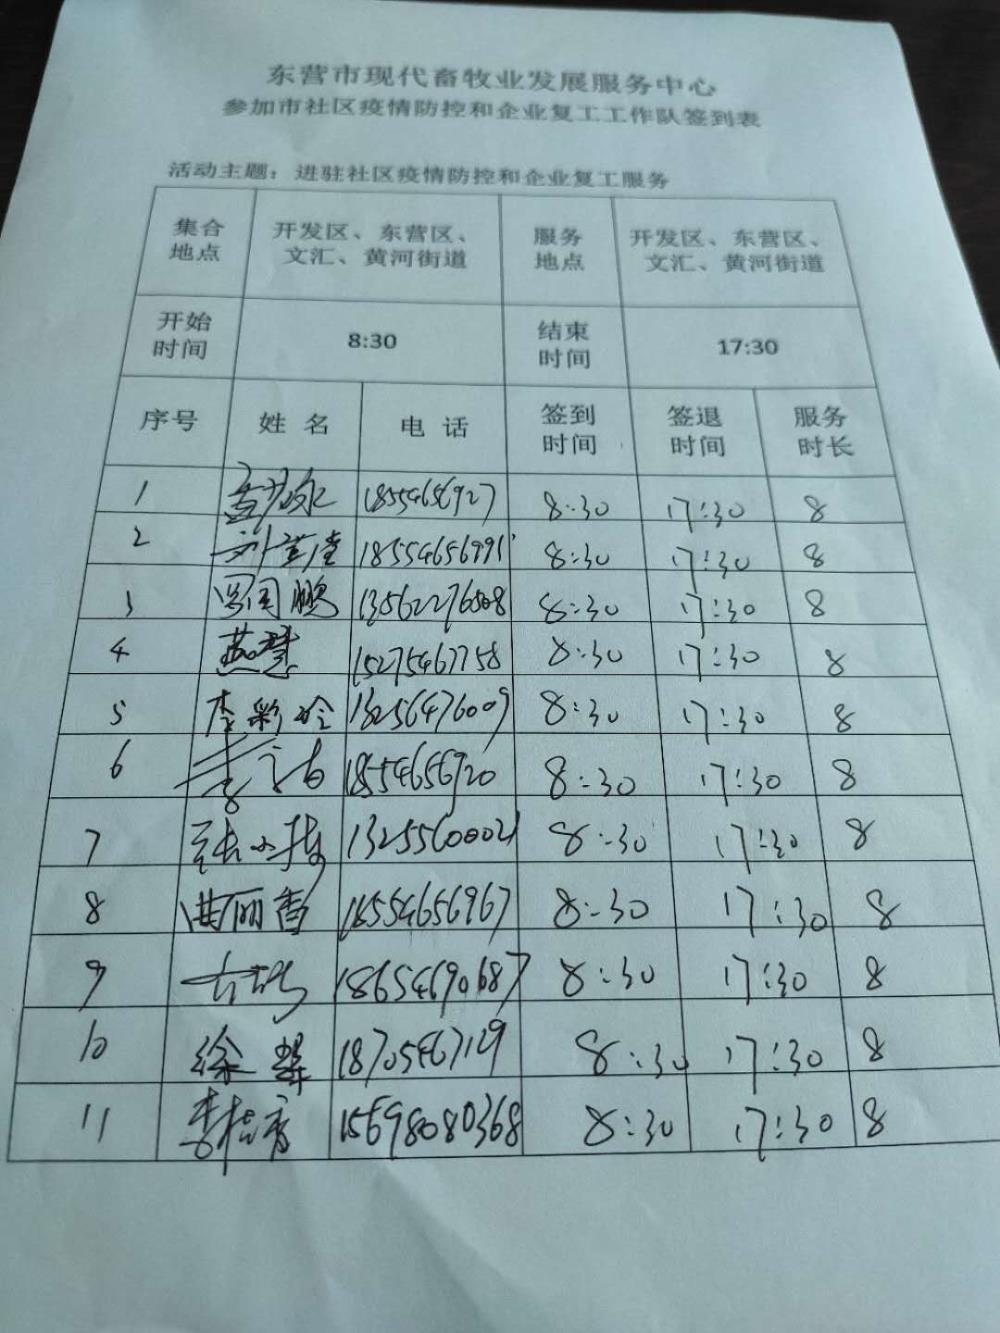 东营市现代畜牧业发展服务中心
参加市社区疫情防控和企业复工工作队签到表
活动主题：进驻社区疫情防控和企业复工服务
集合地点 开发区、东营区、文汇、黄河街道 服务地点 开发区、东营区、文汇、黄河街道
开始时间 8:30 结束时间 17:30
序号 姓名 电话 签到时间 签退时间 服务时长
1 18554656927 8:30 17:30 8
2 18554656991 8:30 17:30 8
3 鹏 13562276508 8:30 17:30 8
4 燕慧 15275467758 8:30 17:30 8
5 李彩玲 13256476009 8:30 17:30 8
6 18554656920 8:30 17:30 8
7 张小梅 13255600021 8:30 17:30 8
8 丽香 18554656967 8:30 17:30 8
9 18654690687 8:30 17:30 8
10 徐 18705467129 8:30 17:30 8
11 李桂香 15698080368 8:30 17:30 8